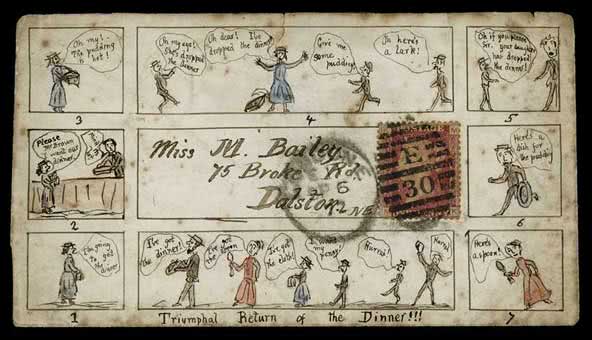 Oh my!
The pudding
is hot!
Oh my eye!
She's dropped
the dinner
Oh dear! I've
dropped the dinner
Give me
some
pudding!
Oh here's
a lark!
Oh if you please
Sir, your
has dropped
the dinner!
3
4
5
Please
Mr Brown
want our
dinner
2
Miss M. Bailey
75 Brooke Rd.
Dalston
N.E.
POSTAGE
E
30
Here's a
dish for
the pudding
6
I'm going
to get
the dinner
1
I've got
the dinner!
I've got
the spoon
I've got
the cloth!
I want my
penny!
Hurra!
Hurra!
Here's
a spoon!
7
Triumphal Return of the Dinner!!!